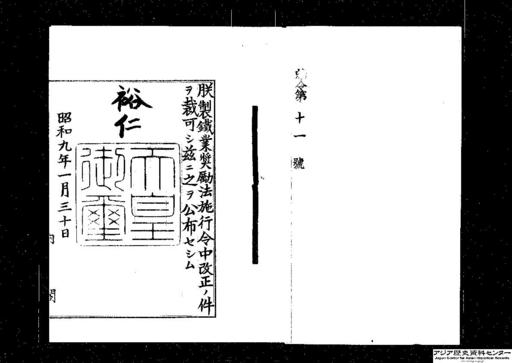 勅令第十一號
朕製鐵業奬勵法施行令中改正ノ件
ヲ裁可シ茲ニ之ヲ公布セシム
裕仁
天皇御璽
昭和九年一月三十日
内閣
アジア歴史資料センター
Japan Center for Asian Historical Records